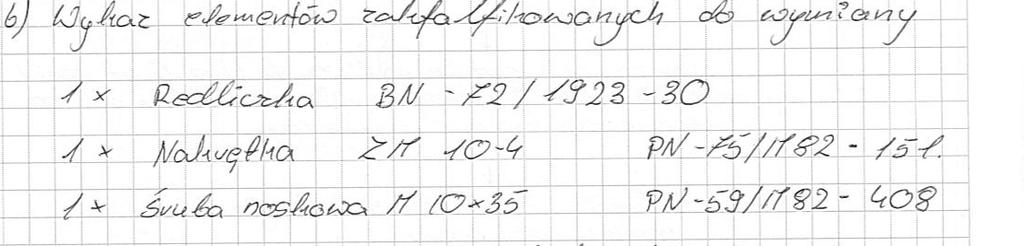 6) Wykaz elementów zakfalfikowanych do wymiany
1 x Redliczka BN - 72 / 1923 - 30
1 x Nakrętka ZM 10-4 PN - 75/M82 - 151.
1 x Śruba noskowa M 10x35 PN - 59/M82 - 408